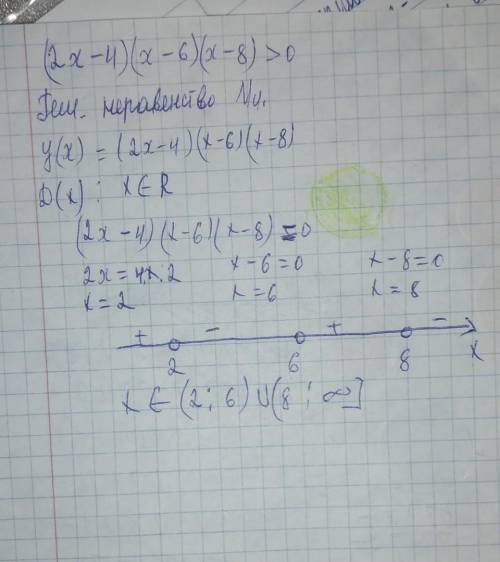 (2x-4)(x-6)(x-8)>0
неравенство
y(x) = (2x-4)(x-6)(x-8)
D(x): x∈R
(2x-4)(x-6)(x-8)=0
2x=4 x-6=0 x-8=0
x=2 x=6 x=8
+ - + -
2 6 8 x
x∈(2; 6)∪(8; ∞]